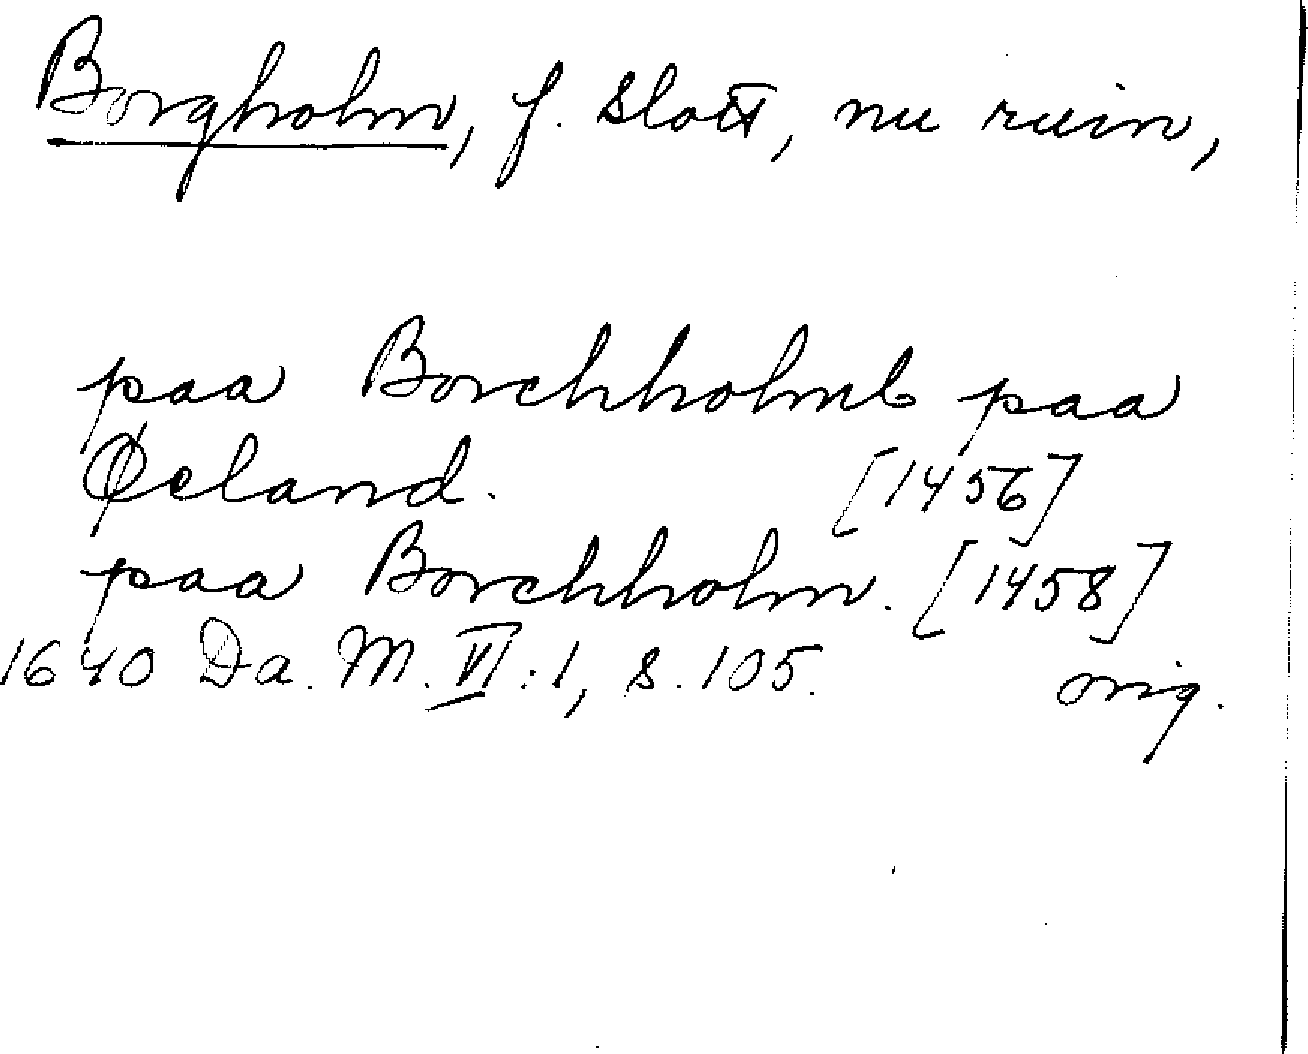 Borgholm, f. slott, nu ruin,
paa Borchholmb paa
Øeland. [1456]
paa Borchholm. [1458]
1640 Da. M. VI:1, s. 105. orig.